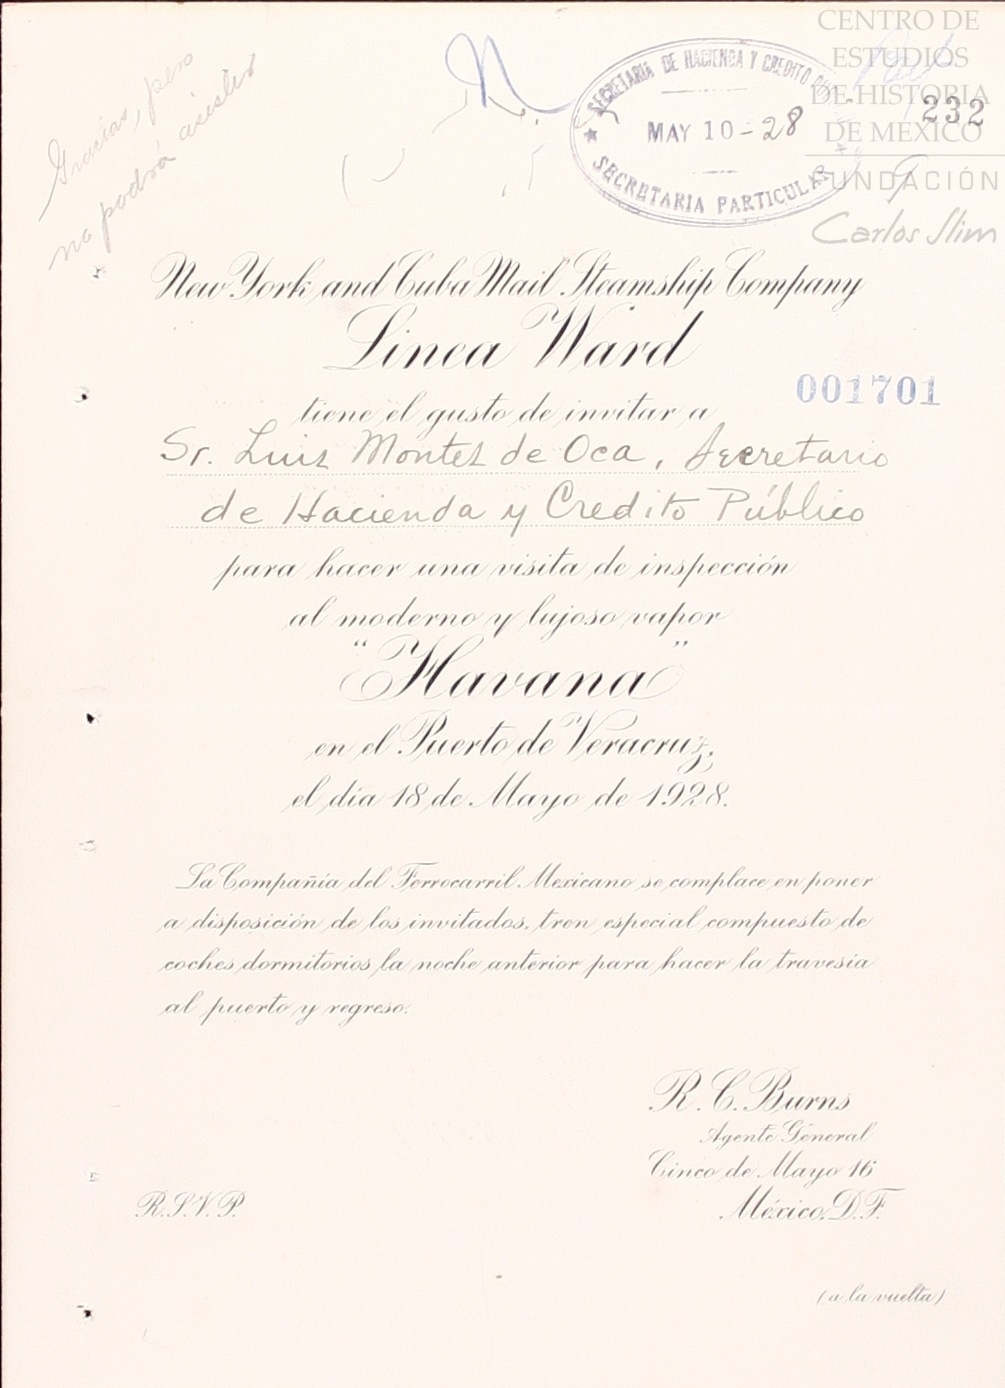 Gracias, pero
no podrá asistir
SECRETARIA DE HACIENDA Y CREDITO
MAY 10-28
SECRETARIA PARTICULAR
CENTRO DE
ESTUDIOS
DE HISTORIA
DE MEXICO
FUNDACIÓN
Carlos Slim
232
New York and Cuba Mail Steamship Company
Linea Ward
001701
tiene el gusto de invitar a
Sr. Luis Montes de Oca, Secretario
de Hacienda y Credito Público
para hacer una visita de inspección
al moderno y lujoso vapor
"Havana"
en el Puerto de Veracruz,
el día 18 de Mayo de 1928.
La Compañía del Ferrocarril Mexicano se complace en poner
a disposición de los invitados, tren especial compuesto de
coches dormitorios la noche anterior para hacer la travesía
al puerto y regreso.
R. C. Burns
Agente General
Cinco de Mayo 16
México, D.F.
R.S.V.P.
(a la vuelta)